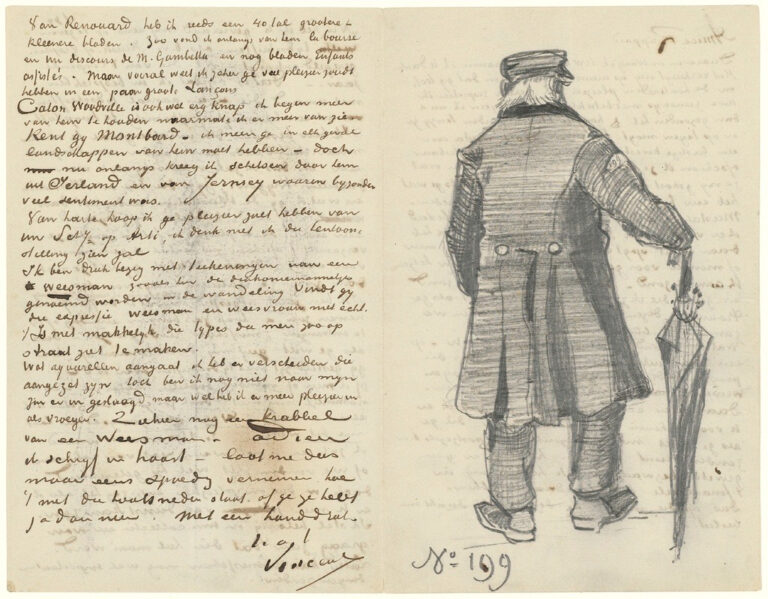 Van Renouard heb ik reeds een 40 tal grootere &
kleenere bladen. Zoo vond ik onlangs van hem la bourse
en un discours de M. Gambetta en nog bladen Enfants
assistés. Maar vooral weet ik zeker ge veel pleizier zoudt
hebben in een paar groote Lançons
Caton Woodville is ook wel erg knap, ik begin meer
van hem te houden naarmate ik er meer van zie.
Kent gij Montbard – ik meen ge in elk geval
landschappen van hem moet hebben – doch
nu onlangs kreeg ik schetsen door hem
uit Ierland en van Jersey waarin byzonder
veel sentiment was.
Van harte hoop ik ge pleizier zult hebben van
uw Sch. op Arti, ik denk met ik die tentoon-
stelling zien zal
Ik ben druk bezig met teekeningen van een
weesman zooals hier de diakoniemannetjes
genoemd worden in de wandeling Vindt gij
die expressie weesman en weesvrouw niet echt.
't Is niet makkelijk die types die men zoo op
straat ziet te maken.
Wat aquarellen aangaat ik heb er verscheiden die
aangezet zyn toch ben ik nog niet naar myn
zin er in geslaagd maar wel heb ik er meer pleizier in
als vroeger. Ziehier nog een krabbel
van een Weesman – adieu
ik schrijf in haast – laat me dus
maar eens spoedig vernemen hoe
't met die houtsneden staat. of ge ze hebt
ja dan neen Met een handdruk.
t. à t.
Vincent
No 199